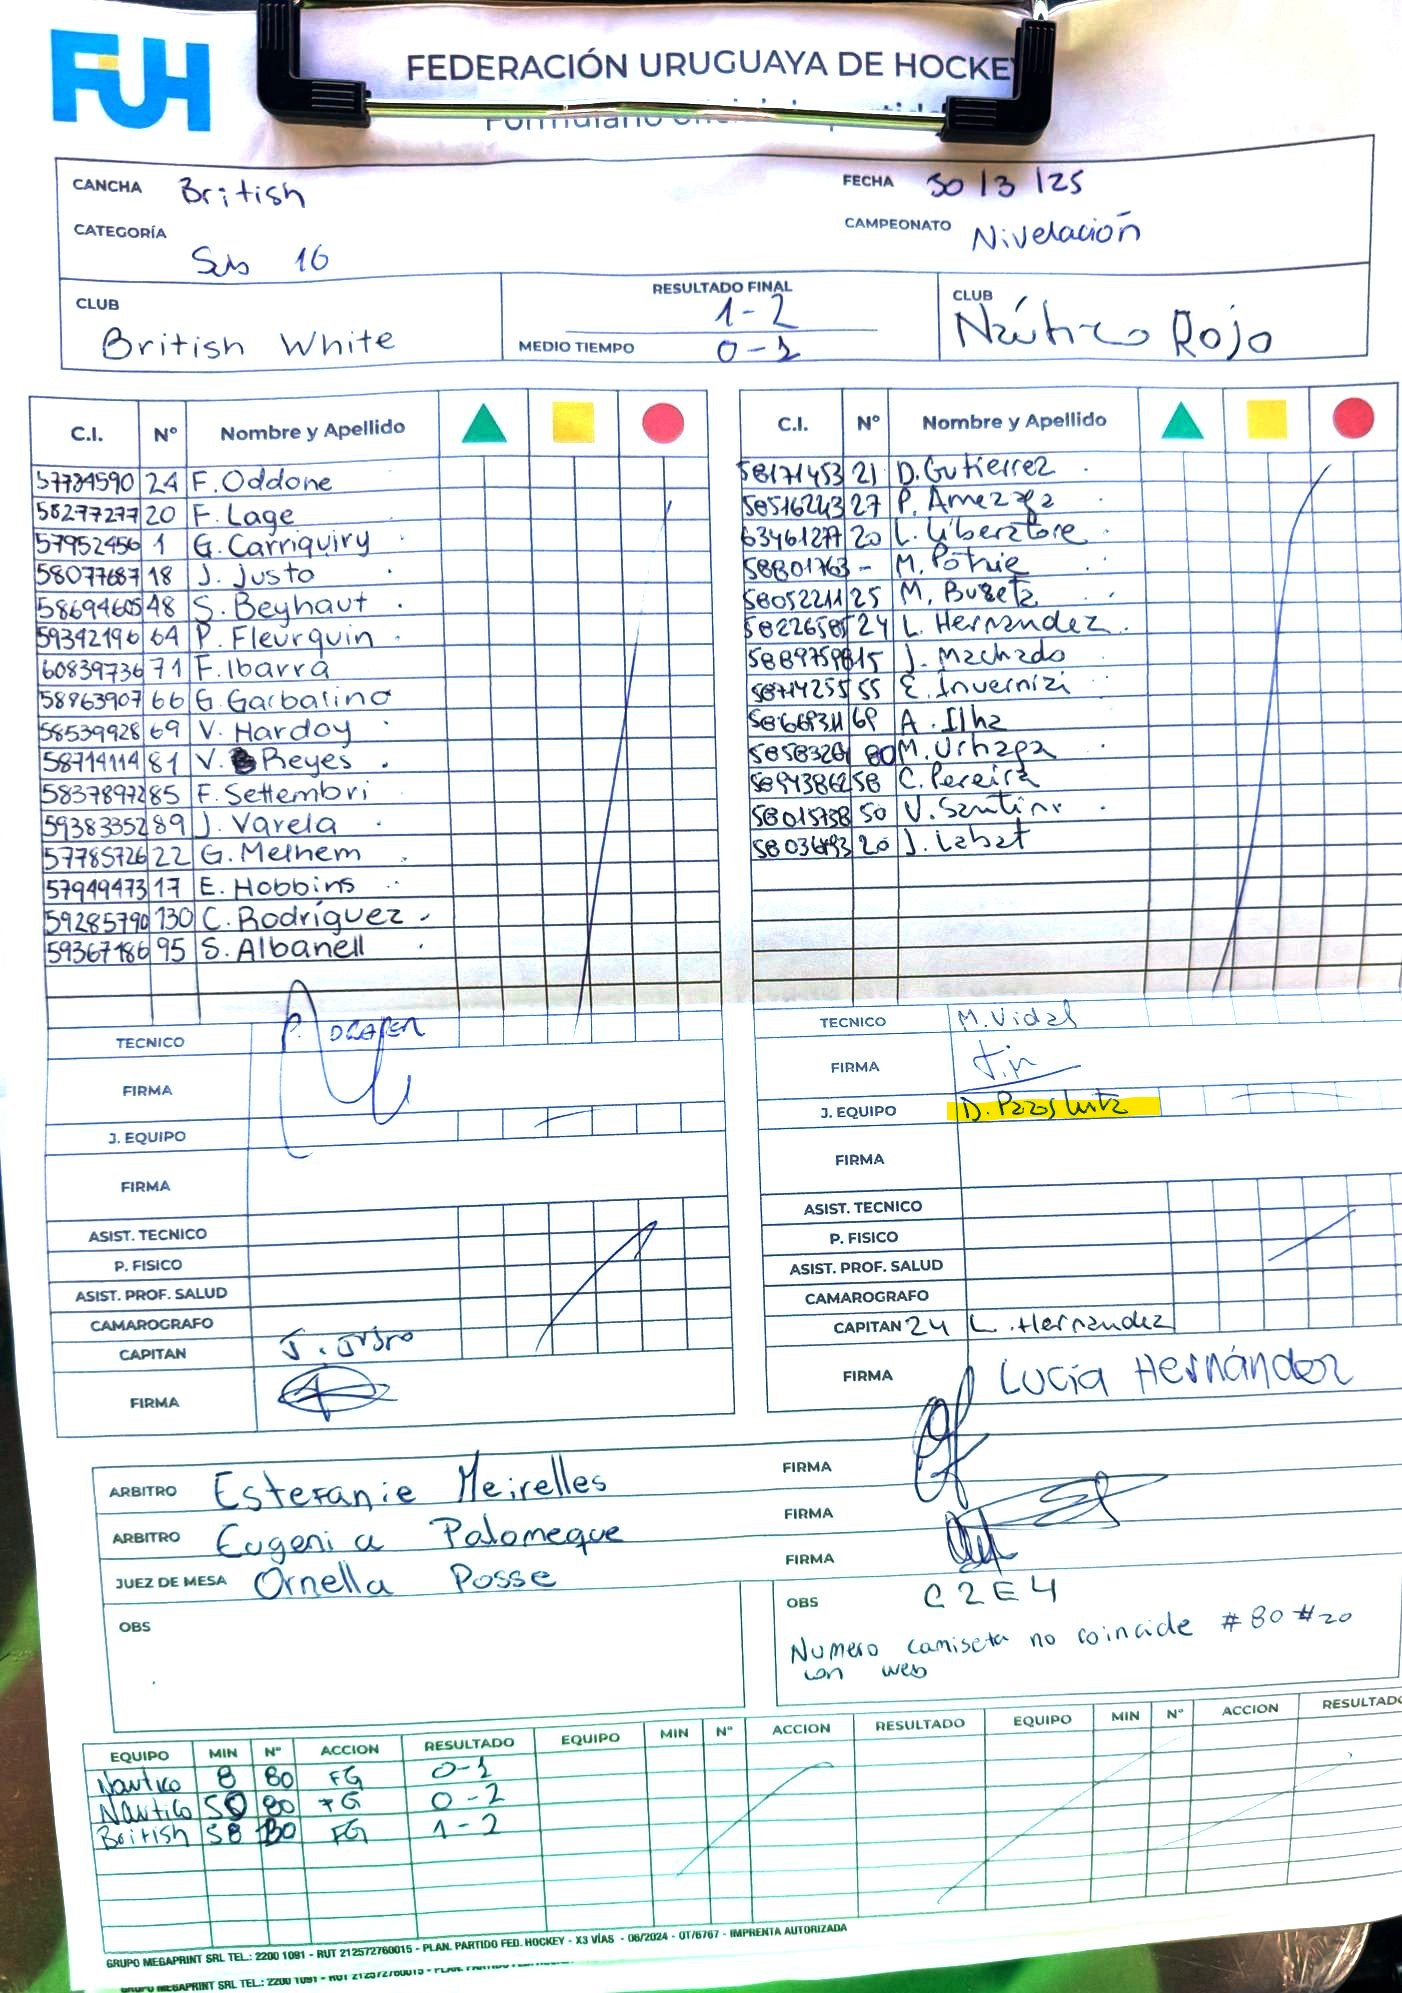 FUH
FEDERACIÓN URUGUAYA DE HOCKEY
CANCHA British
FECHA 30/3/25
CATEGORÍA Sub 16
CAMPEONATO Nivelación
CLUB British White
RESULTADO FINAL 1-2
MEDIO TIEMPO 0-1
CLUB Náutico Rojo
C.I. Nº Nombre y Apellido
57784590 24 F. Oddone
58277277 20 F. Lage
57952456 1 G. Carriquiry
58077687 18 J. Justo
58694605 48 S. Beyhaut
59342196 64 P. Fleurquin
60839736 71 F. Ibarra
58963907 66 G. Garbalino
58539928 69 V. Hardoy
58714114 81 V. Reyes
58378972 85 F. Settembri
59383352 89 J. Varela
57785726 22 G. Melhem
57949473 17 E. Hobbins
59285790 130 C. Rodríguez
59367186 95 S. Albanell
TECNICO
FIRMA
J. EQUIPO
FIRMA
ASIST. TECNICO
P. FISICO
ASIST. PROF. SALUD
CAMAROGRAFO
CAPITAN J. Justo
FIRMA
C.I. Nº Nombre y Apellido
58171453 21 D. Gutierrez
58516243 27 P. Amezaga
63461277 20 L. Liberatore
58801763 - M. Pótrie
58052211 25 M. Buseta
58226585 24 L. Hernandez
58897598 15 J. Machado
58714255 55 E. Invernizi
58669311 69 A. Ilha
58583261 80 M. Urhaga
58943862 58 C. Pereira
58015738 50 V. Santino
58036893 20 J. Labat
TECNICO M. Vidal
FIRMA
J. EQUIPO D.
FIRMA
ASIST. TECNICO
P. FISICO
ASIST. PROF. SALUD
CAMAROGRAFO
CAPITAN 24 L. Hernandez
FIRMA Lucía Hernández
ARBITRO Estefanie Meirelles FIRMA
ARBITRO Eugenia Palomeque FIRMA
JUEZ DE MESA Ornella Posse FIRMA
OBS
OBS C2E4
Numero camiseta no coincide #80 #20
con web
EQUIPO MIN Nº ACCION RESULTADO EQUIPO MIN Nº ACCION RESULTADO EQUIPO MIN Nº ACCION RESULTADO
Nautico 8 80 FG 0-1
Nautico 50 80 FG 0-2
British 58 130 FG 1-2
GRUPO MEGAPRINT SRL TEL.: 2200 1091 - RUT 212572760015 - PLAN. PARTIDO FED. HOCKEY - X3 VÍAS - 06/2024 - OT/6767 - IMPRENTA AUTORIZADA
GRUPO MEGAPRINT SRL TEL.: 2200 1091 - RUT 212572760015 - PLAN.